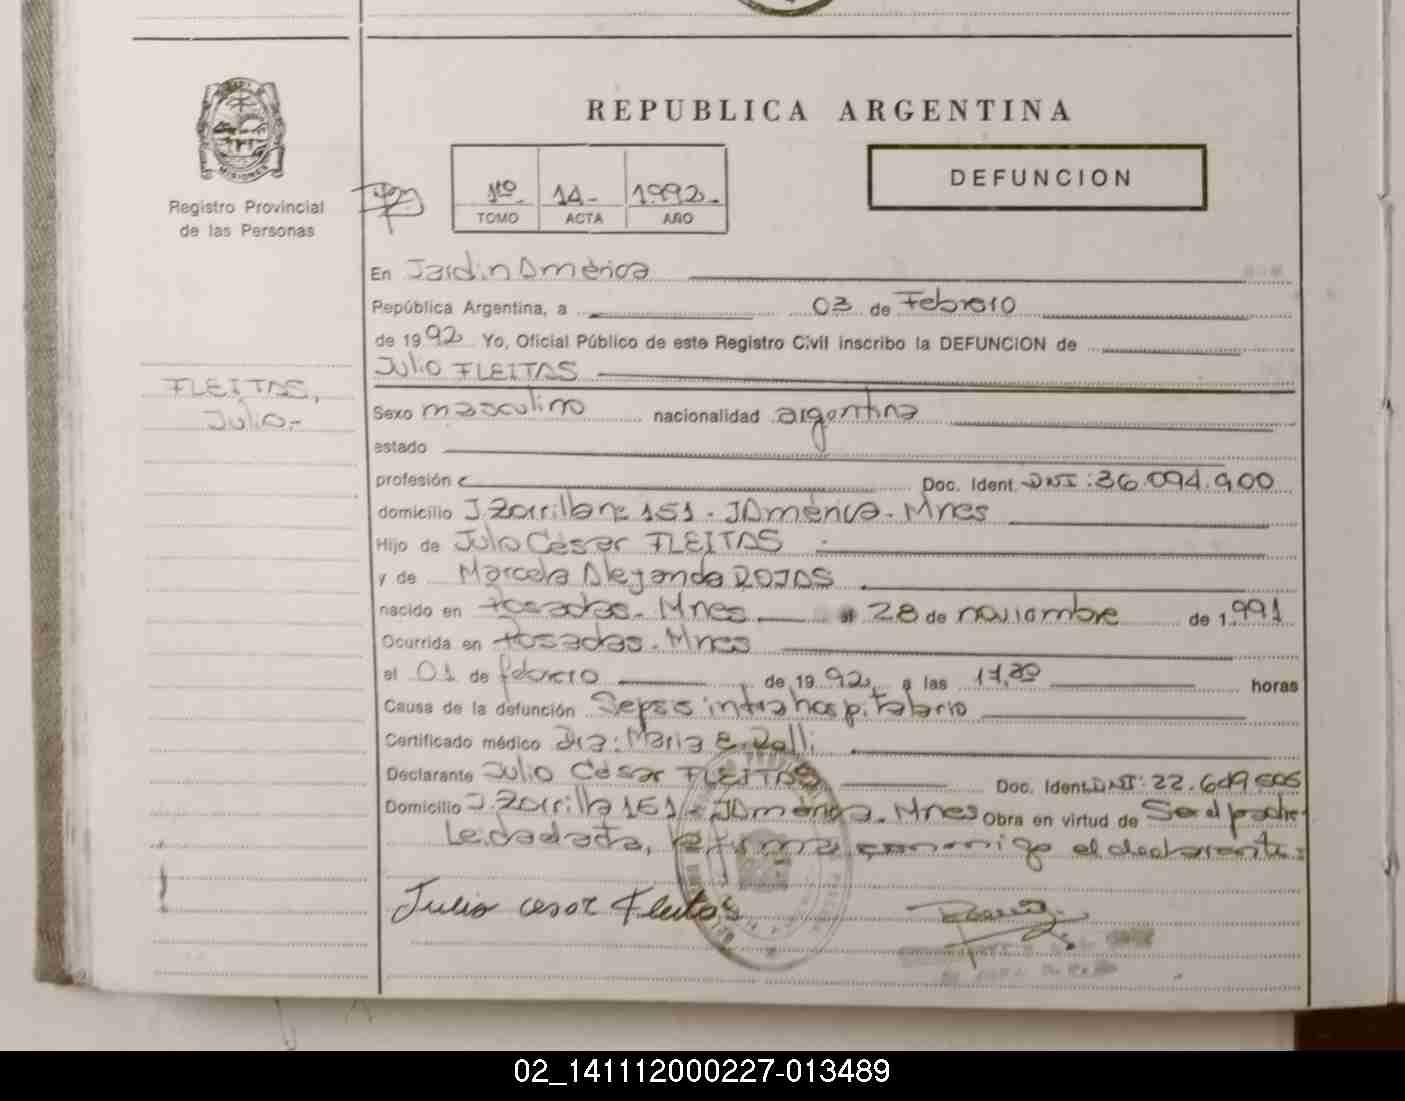 REPUBLICA ARGENTINA
MISIONES
Registro Provincial
de las Personas
1ro 14- 1992.
TOMO ACTA AÑO
DEFUNCION
En Jardin América
República Argentina, a 03 de Febrero
de 1992 Yo, Oficial Público de este Registro Civil inscribo la DEFUNCION de
Julio FLEITAS
FLEITAS,
Julio.-
Sexo masculino nacionalidad argentina
estado
profesión Doc. Ident. DNI: 36.094.900
domicilio J. Zorrilla nº 151. J América. Mnes
Hijo de Julio César FLEITAS
y de Marcela Alejandra ROJAS
nacido en Posadas. Mnes el 28 de noviembre de 1.991
Ocurrida en Posadas. Mnes
el 01 de febrero de 1992, a las 17,30 horas
Causa de la defunción Sepsis intrahospitalario
Certificado médico Dra: Maria E.
Declarante Julio César FLEITAS Doc. Ident. DNI: 22.
Domicilio J. Zorrilla 151 - J América. Mnes Obra en virtud de Ser el padre.
Leida el acta, la firma conmigo el declarante:
Julio cesar Fleitas
02_141112000227-013489